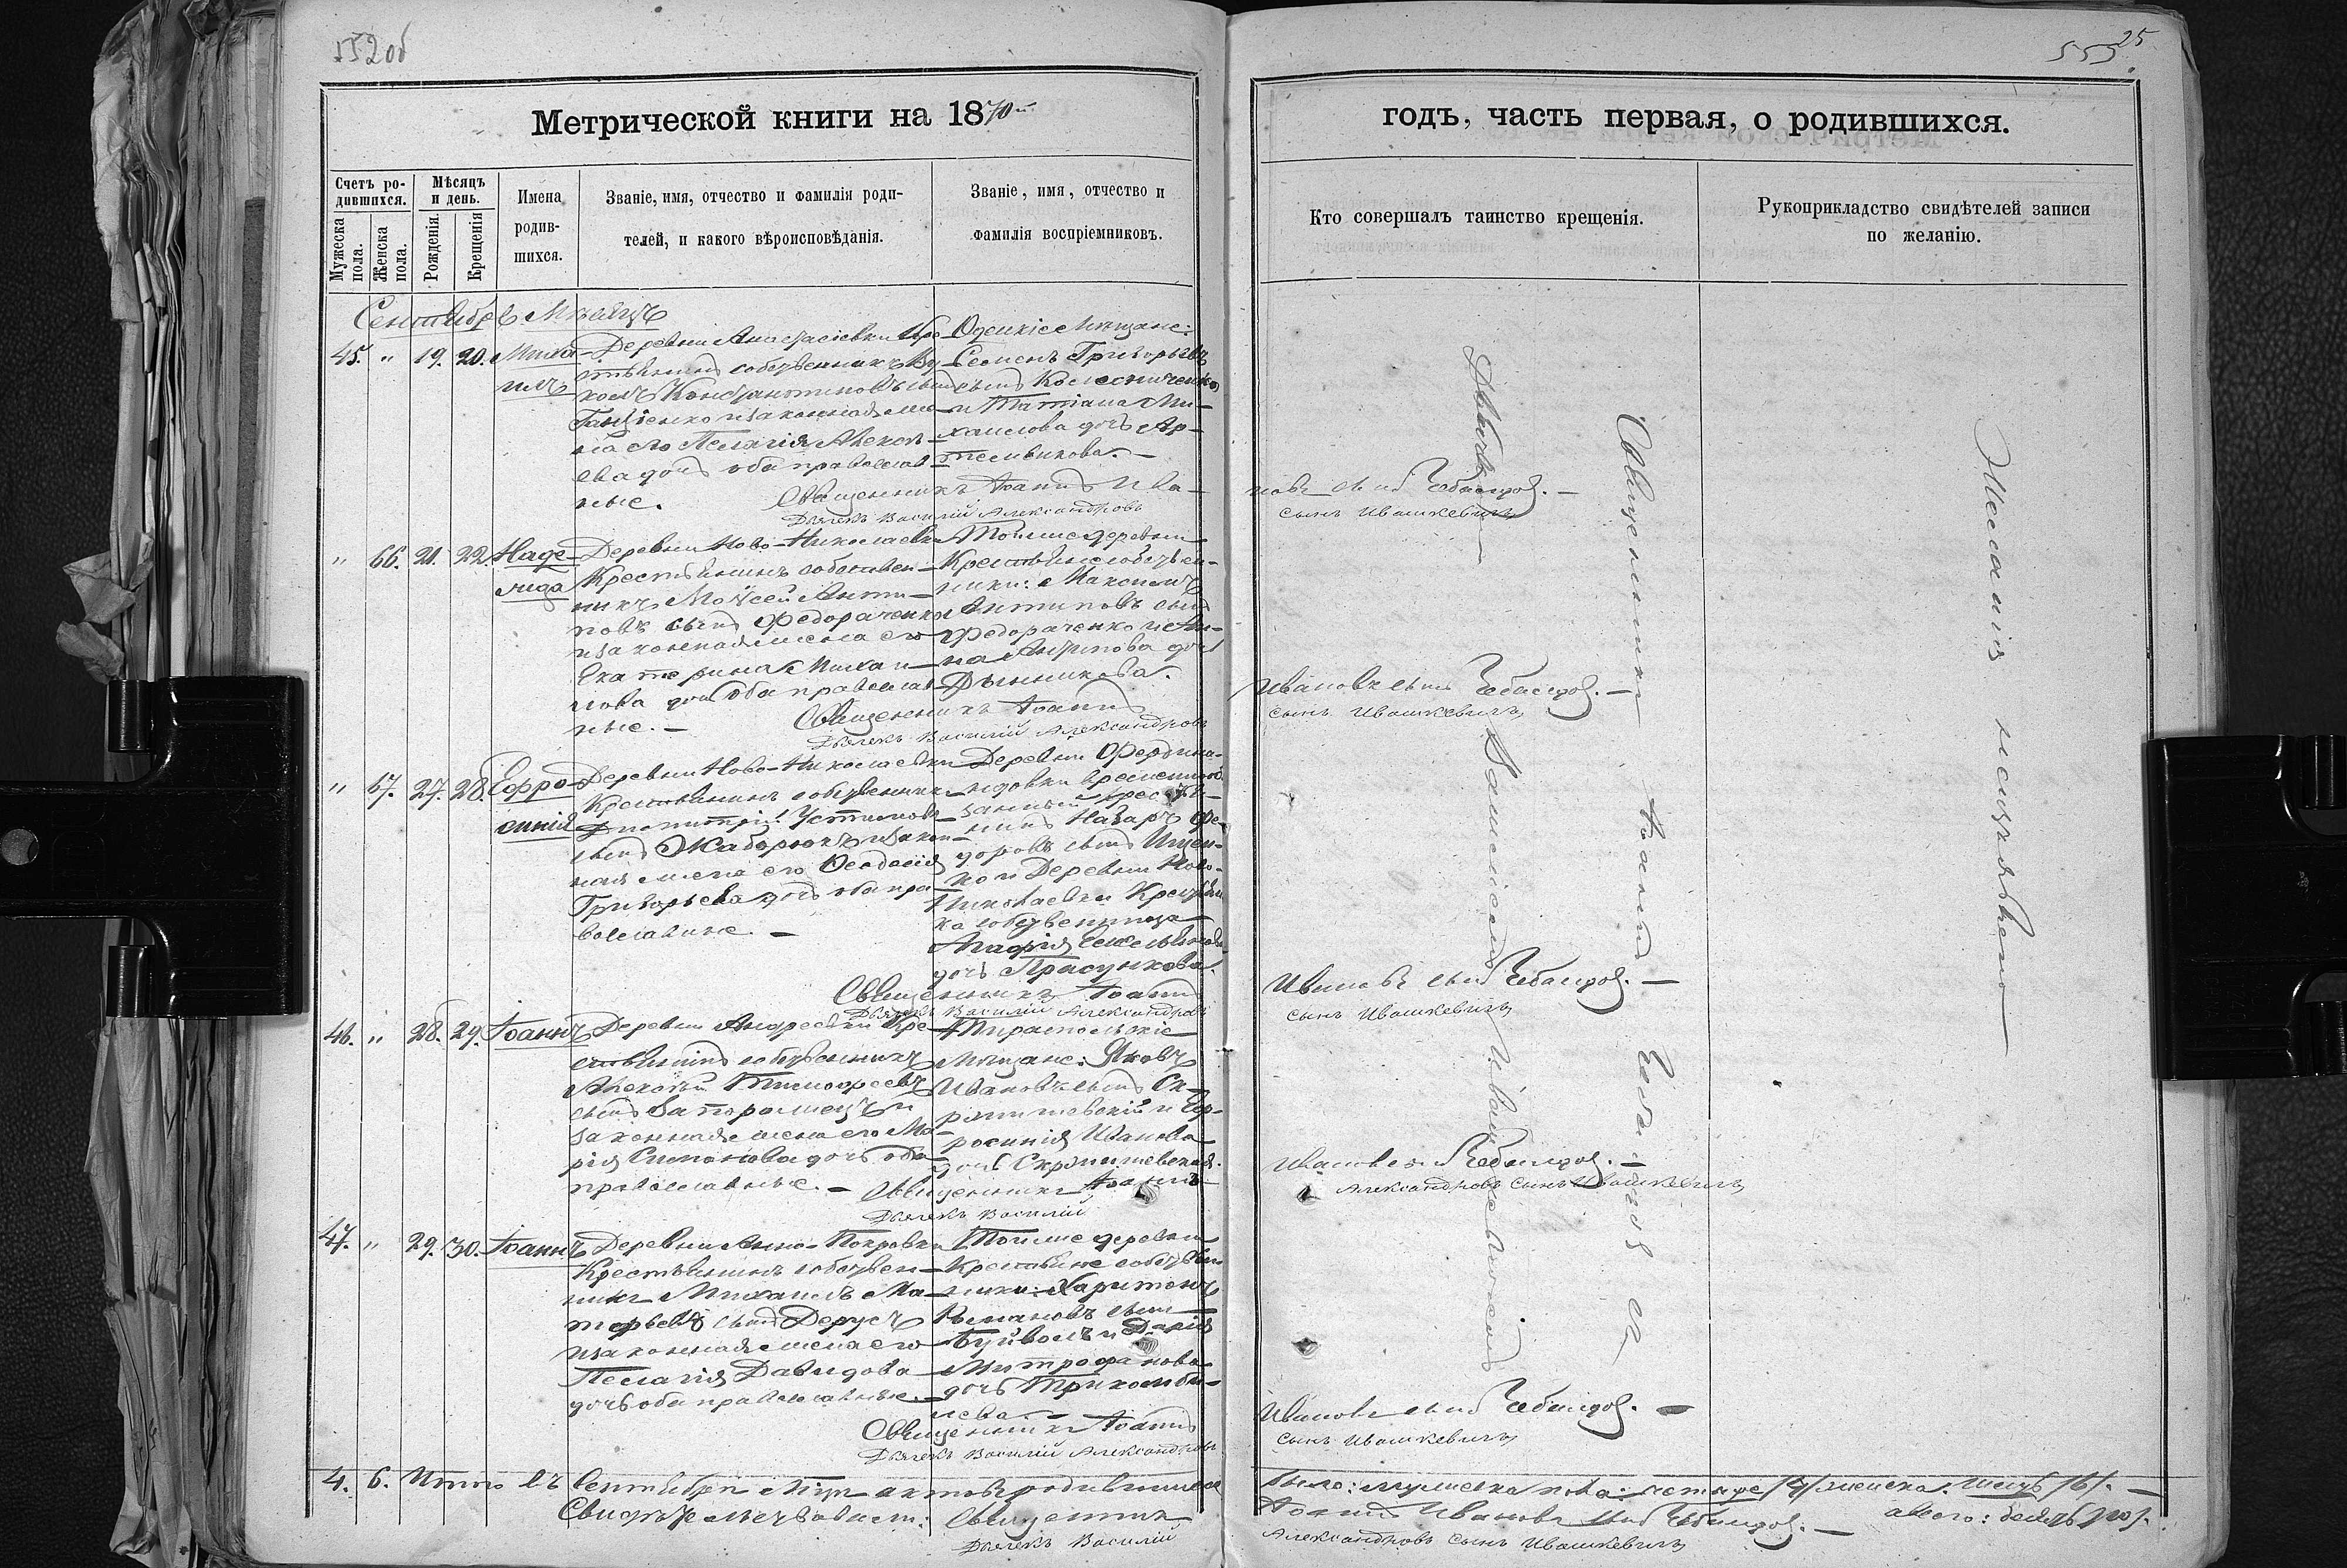 552об
25
555.
Метрической книги на 1870й
годъ, часть первая, о родившихся.
Счетъ ро-
дившихся.
Мужеска пола.
Женска пола.
Мѣсяцъ
и день.
Рожденія.
Крещенія
Имена
родив-
шихся.
Званіе, имя, отчество и фамилія роди-
телей, и какого вѣроисповѣданія.
Званіе, имя, отчество и
фамилія воспріемниковъ.
Кто совершалъ таинство крещенія.
Рукоприкладство свидѣтелей записи
по желанію.
Сентябрь Мѣсяцъ
45. " 19. 20. Миха-
илъ
Деревни Анастасіевки Кре-
стьянинъ собственникъ Ву-
колъ Константиновъ сынъ
и законная же-
на его Пелагія Алексѣ-
ева дочь оба православ-
ные.
Одескіе Мѣщане:
Семенъ Григорьевъ
сынъ Колесниченко
и Татіана Ми-
хаилова дочь Ар-
темьикова.
Священникъ Іоаннъ Ива-
новъ сынъ
Дьячекъ Василій Александровъ
сынъ Ивашкевичъ
" 66. 21. 22. Наде-
жда
Деревни Ново-Николаевки
Крестьянинъ собствен-
никъ Моѵсей Анти-
повъ сынъ Федораченко
и законная жена его
Екатерина Михаи-
лова дочь оба православ-
ные.
Той же деревни
Крестьяне собствен-
ники: Максимъ
Антиповъ сынъ
Федораченко и Ан-
на Антипова дочь
Дынникова.
Священникъ Іоаннъ
Ивановъ сынъ
Дьячекъ Василій Александровъ
сынъ Ивашкевичъ
" 67. 27. 28. Ефро-
синія
Деревни Ново-Николаевки
Крестьянинъ собственникъ
Димитрій Устиновъ
сынъ Жаборюкъ и закон-
ная жена его Ѳеодосія
Григорьева дочь оба пра-
вославные.
Деревни Фердина-
ндовки временнооб.
занный крестья-
нинъ Назаръ Фе-
доровъ сынъ Ищен-
ко и Деревни Ново-
Николаевки Крестьян
ка собственница
Агафія Емельянова
дочь Прасункова.
Священникъ Іоаннъ
Ивановъ сынъ
Дьячекъ Василій Александровъ
сынъ Ивашкевичъ
46. " 28. 29. Іоаннъ
Деревни Андреевки Кре-
стьянинъ собственникъ
Алексѣй Тимофеевъ
сынъ Запорожецъ и
законная жена его Ма-
рія Симонова дочь оба
православные.
Тираспольскіе
Мѣщане: Яковъ
Ивановъ сынъ
и Евф-
росинія Иванова
дочь
Священникъ Іоаннъ
Ивановъ
Дьячекъ Василій
Александровъ сынъ Ивашкевичъ
47. " 29. 30. Іоаннъ
Деревни Анно-Покровки
Крестьянинъ собствен-
никъ Михаилъ Ма-
тфѣевъ сынъ Дерусъ
и законная жена его
Пелагія Давидова
дочь оба православные.
Той же деревни
Крестьяне собствен
ники: Харитонъ
Романовъ сынъ
Буйволъ и Дарія
Митрофанова
дочь
Священникъ Іоаннъ
Ивановъ сынъ
Дьячекъ Василій Александровъ
сынъ Ивашкевичъ
Священникъ Іоаннъ
Дьячекъ Василій Ивашкевичъ
Желанія не изъявлено
4. 6. Итого въ Сентябрѣ мѣсяцѣ актовъ родившихся
было: мужеска пола: четыре /4/ женска: шесть /6/.
а всего: десять /10/.
Свидѣтельствовали: Священникъ
Іоаннъ Ивановъ сынъ
Дьячекъ Василій
Александровъ сынъ Ивашкевичъ